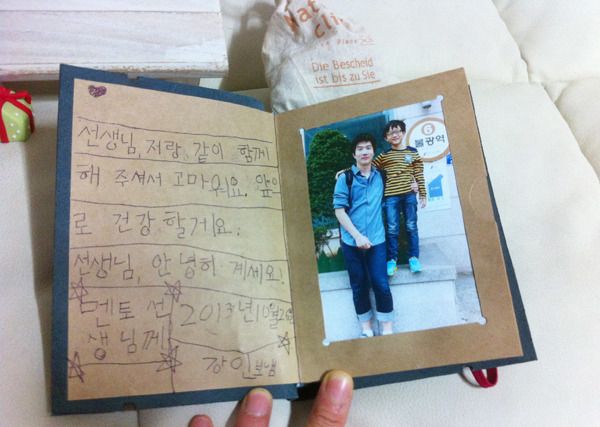 선생님, 저랑 같이 함께
해 주셔서 고마워요. 앞으
로 건강 할게요.
선생님, 안녕히 계세요!
멘토 선
생님께
2013년 10월
Die Bescheid
ist bis zu Sie
6
불광역